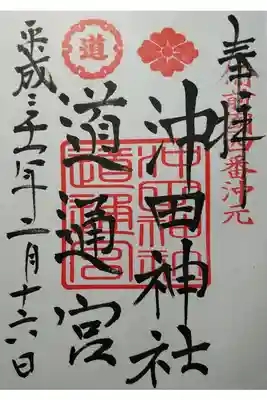 奉拝
番沖元
沖田神社
道
道通宮
平成三十一年二月十六日